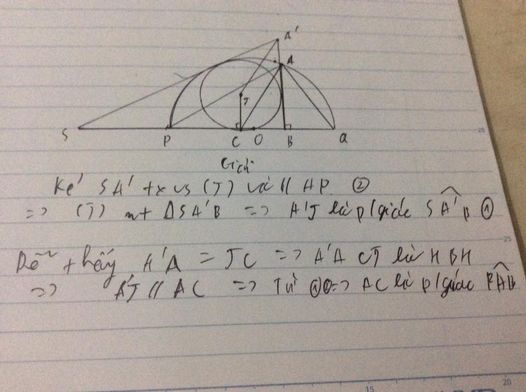 A'
A
J
S P C O B Q
Giải
Kẻ SA' tx vs (J) và // AP ②
=> (J) nt ΔSA'B => A'J là p/giác SA'B ①
Dễ thấy A'A = JC => A'A CJ là HBH
=> A'J // AC => Từ ①② => AC là p/giác PAB